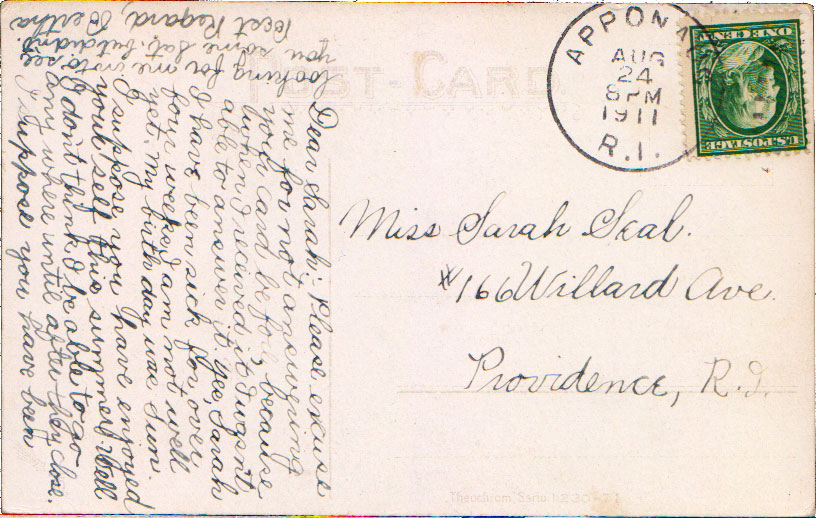 POST CARD
APPONAUG
AUG
24
8 PM
1911
R.I.
U.S. POSTAGE
ONE CENT
Miss Sarah Seal.
#166 Willard Ave.
Providence, R.I.
Dear Sarah: Please excuse
me for not answering
your card before, because
when I received it I wasn't
able to answer it yes, Sarah
I have been sick for over
four weeks, I am not well
yet. My birthday was Sun.
I suppose you have enjoyed
your self this summer? Well
I don't think I be able to go
any where until after they close.
I suppose you have been
looking for me in to see
you some Sat. but didn't.
Best Regard, Bertha
Theochrom Serie 1230-71